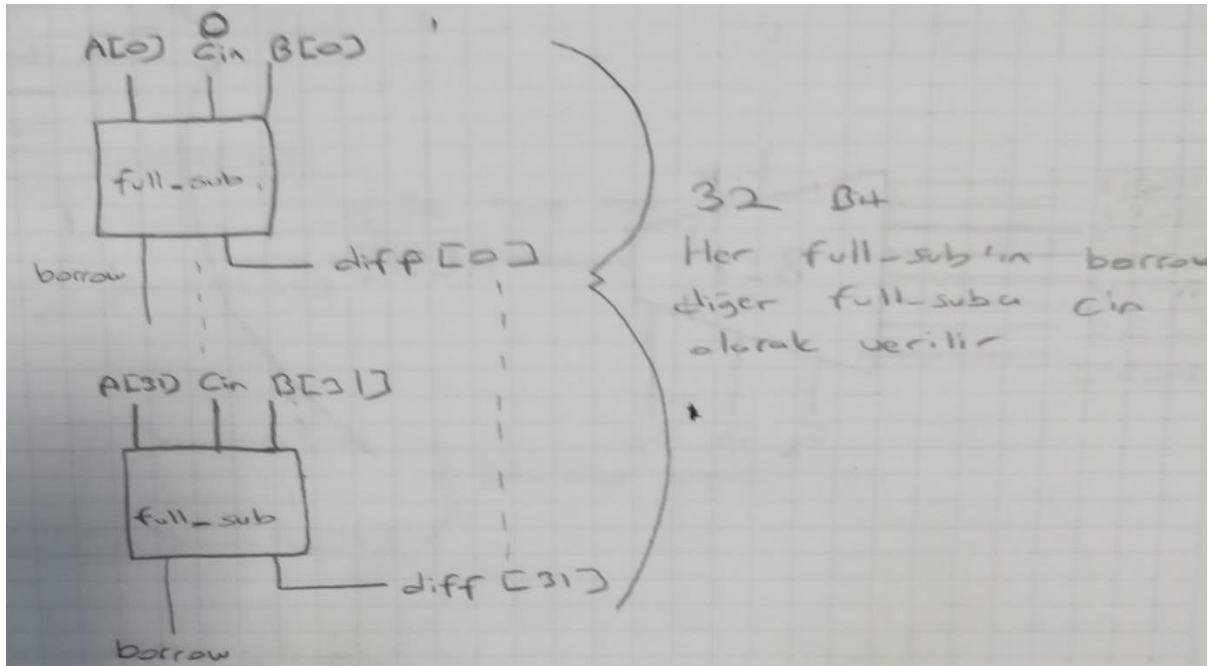 0
A[0] Cin B[0]
full_sub
borrow
diff [0]
A[31] Cin B[31]
full_sub
diff [31]
borrow
32 Bit
Her full_sub'ın borrow
diger full_suba Cin
olarak verilir